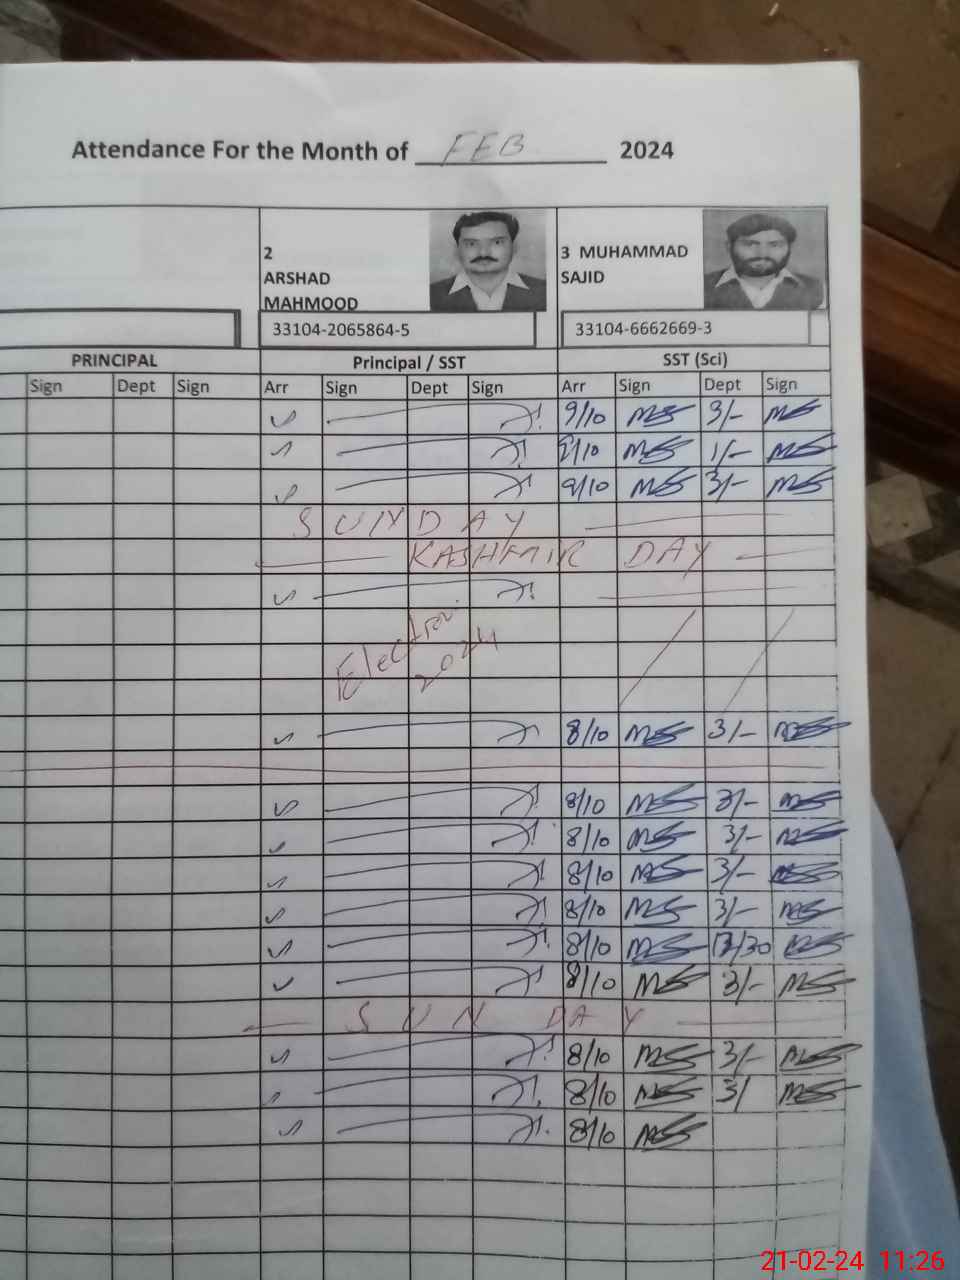 Attendance For the Month of FEB 2024
2
ARSHAD
MAHMOOD
3 MUHAMMAD
SAJID
33104-2065864-5
33104-6662669-3
PRINCIPAL Principal / SST SST (Sci)
Sign Dept Sign Arr Sign Dept Sign Arr Sign Dept Sign
9/10 MS 3/- MS
9/10 MS 1/- MS
9/10 MS 3/- MS
SUNDAY
KASHMIR DAY
Election
2024
8/10 MS 3/- MS
8/10 MS 3/- MS
8/10 MS 3/- MS
8/10 MS 3/- MS
8/10 MS 3/- MS
8/10 MS 12/30 MS
8/10 MS 3/- MS
SUN DAY
8/10 MS 3/- MS
8/10 MS 3/ MS
8/10 MS
21-02-24 11:26